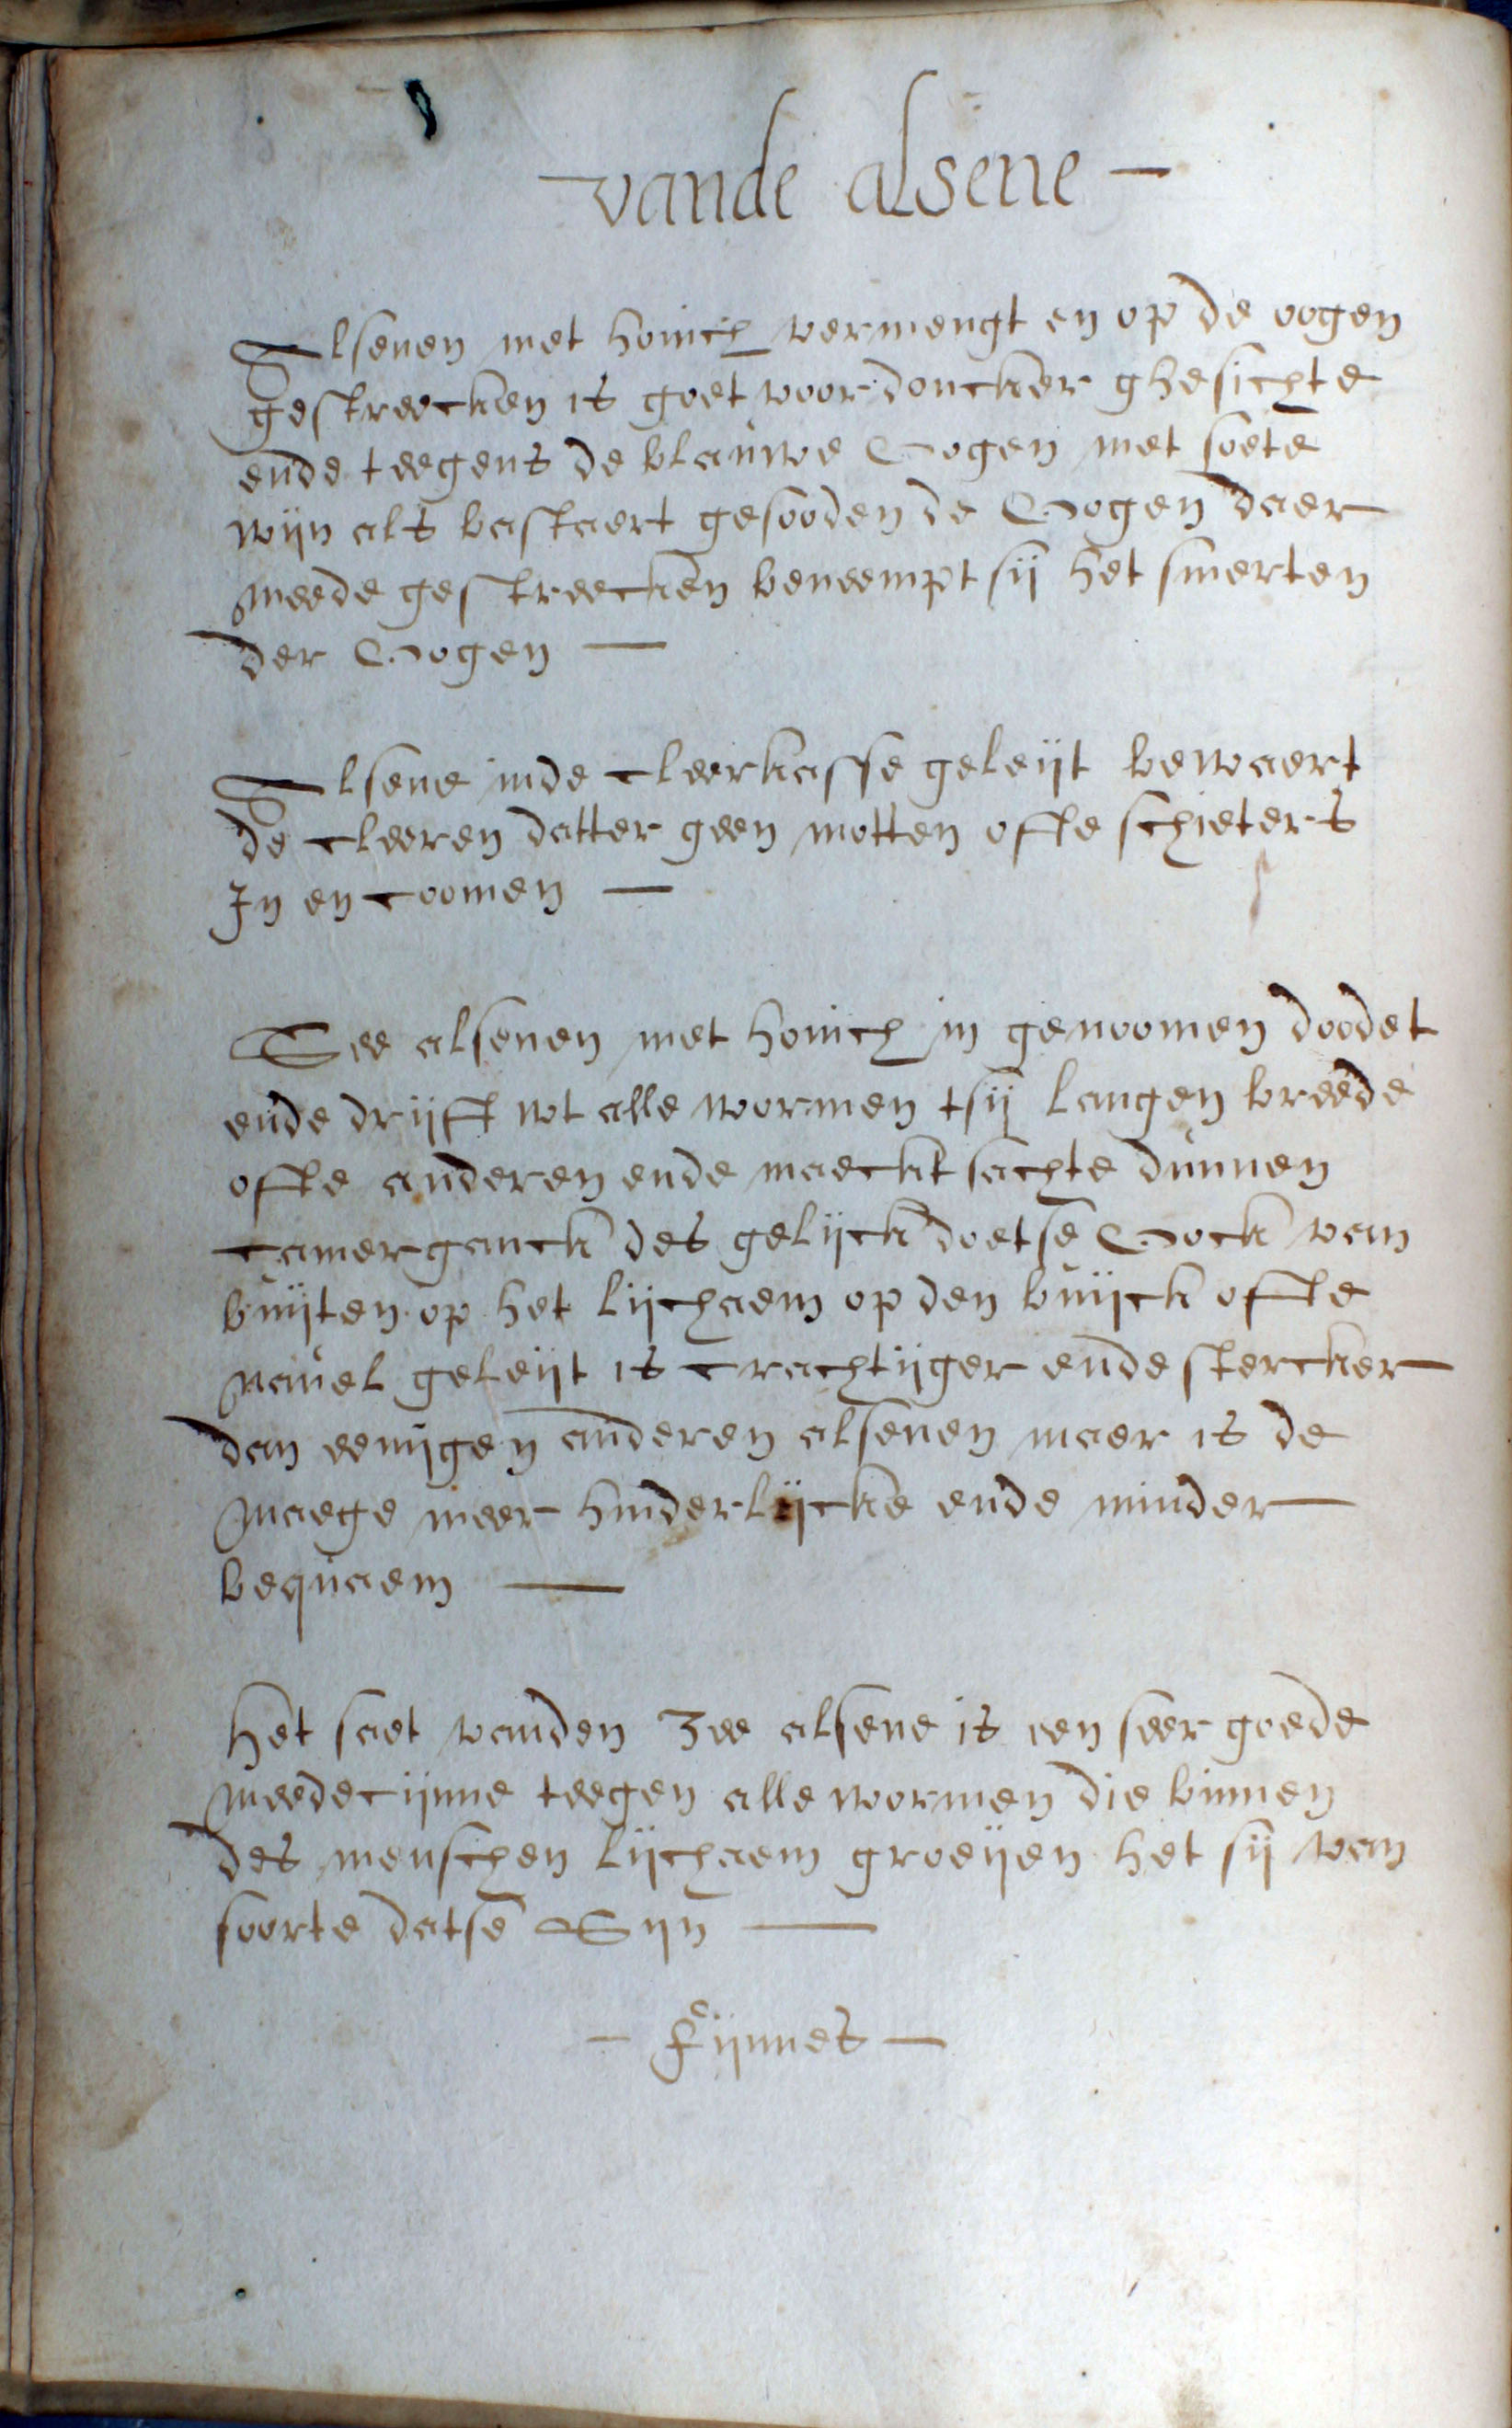 vande alsene
Alsenen met honich vermengt en op de oogen
gestreecken is goet voor doncker ghesichte
ende teegens de blauwe Oogen met soete
wijn als bastaert gesooden de Oogen daer
meede gestreecken beneempt sij het smerten
der Oogen
Alsene inde cleerkasse geleijt bewaert
de cleeren datter geen motten ofte schieters
In en coomen
See alsenen met honich in genoomen doodet
ende drijft wt alle wormen tsij langen breede
ofte anderen ende maeckt sachte dunnen
camerganck des gelijck doetse Oock van
buijten op het lijchaem op den buijck ofte
navel geleijt is crachtijger ende stercker
dan eenijgen anderen alsenen maer is de
maege meer hinderlijcke ende minder
bequaem
Het saet vanden Zee alsene is een seer goede
meedecijnne teegen alle wormen die binnen
des menschen lijchaem groeijen het sij van
soorte datse Sijn
Fijnnes